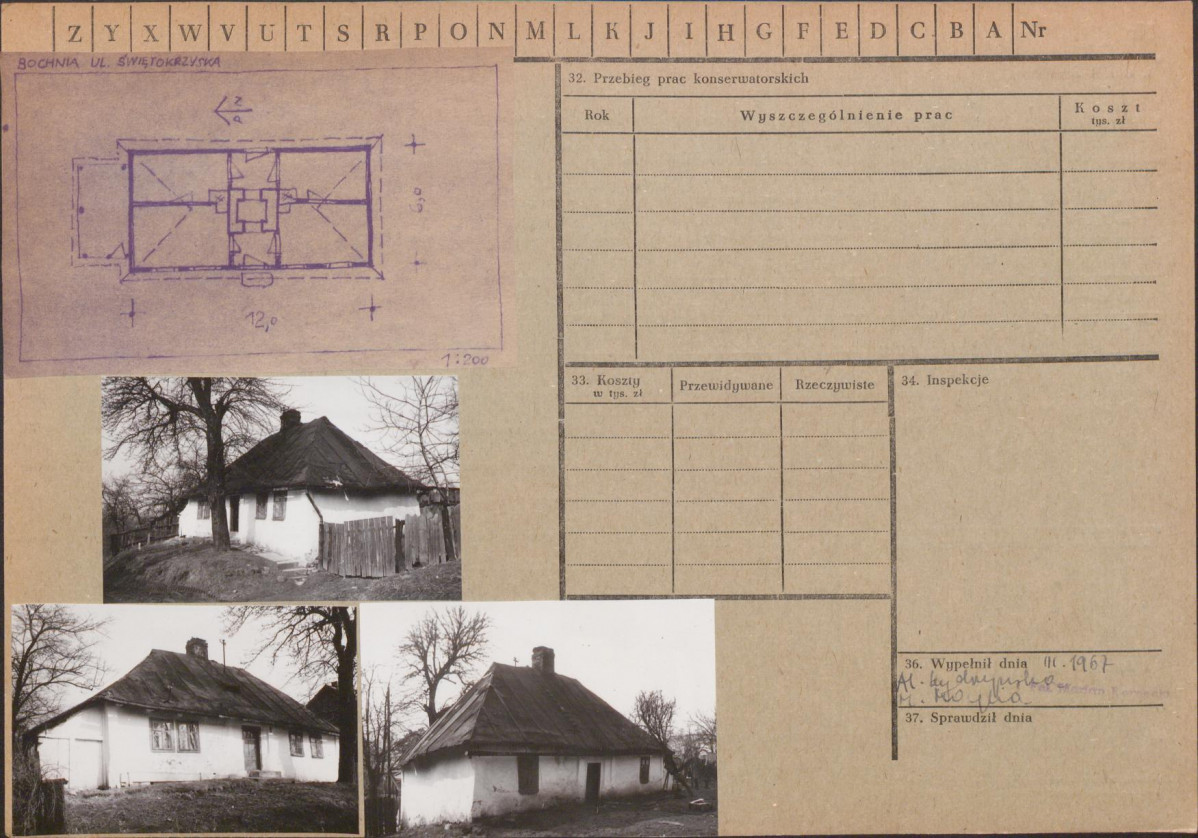 Z Y X W V U T S R P O N M L K J I H G F E D C B A Nr
BOCHNIA UL. ŚWIĘTOKRZYSKA
6,0
12,0
1:200
32. Przebieg prac konserwatorskich
Rok
Wyszczególnienie prac
Koszt
tys. zł
33. Koszty
w tys. zł
Przewidywane
Rzeczywiste
34. Inspekcje
36. Wypełnił dnia III. 1967
37. Sprawdził dnia